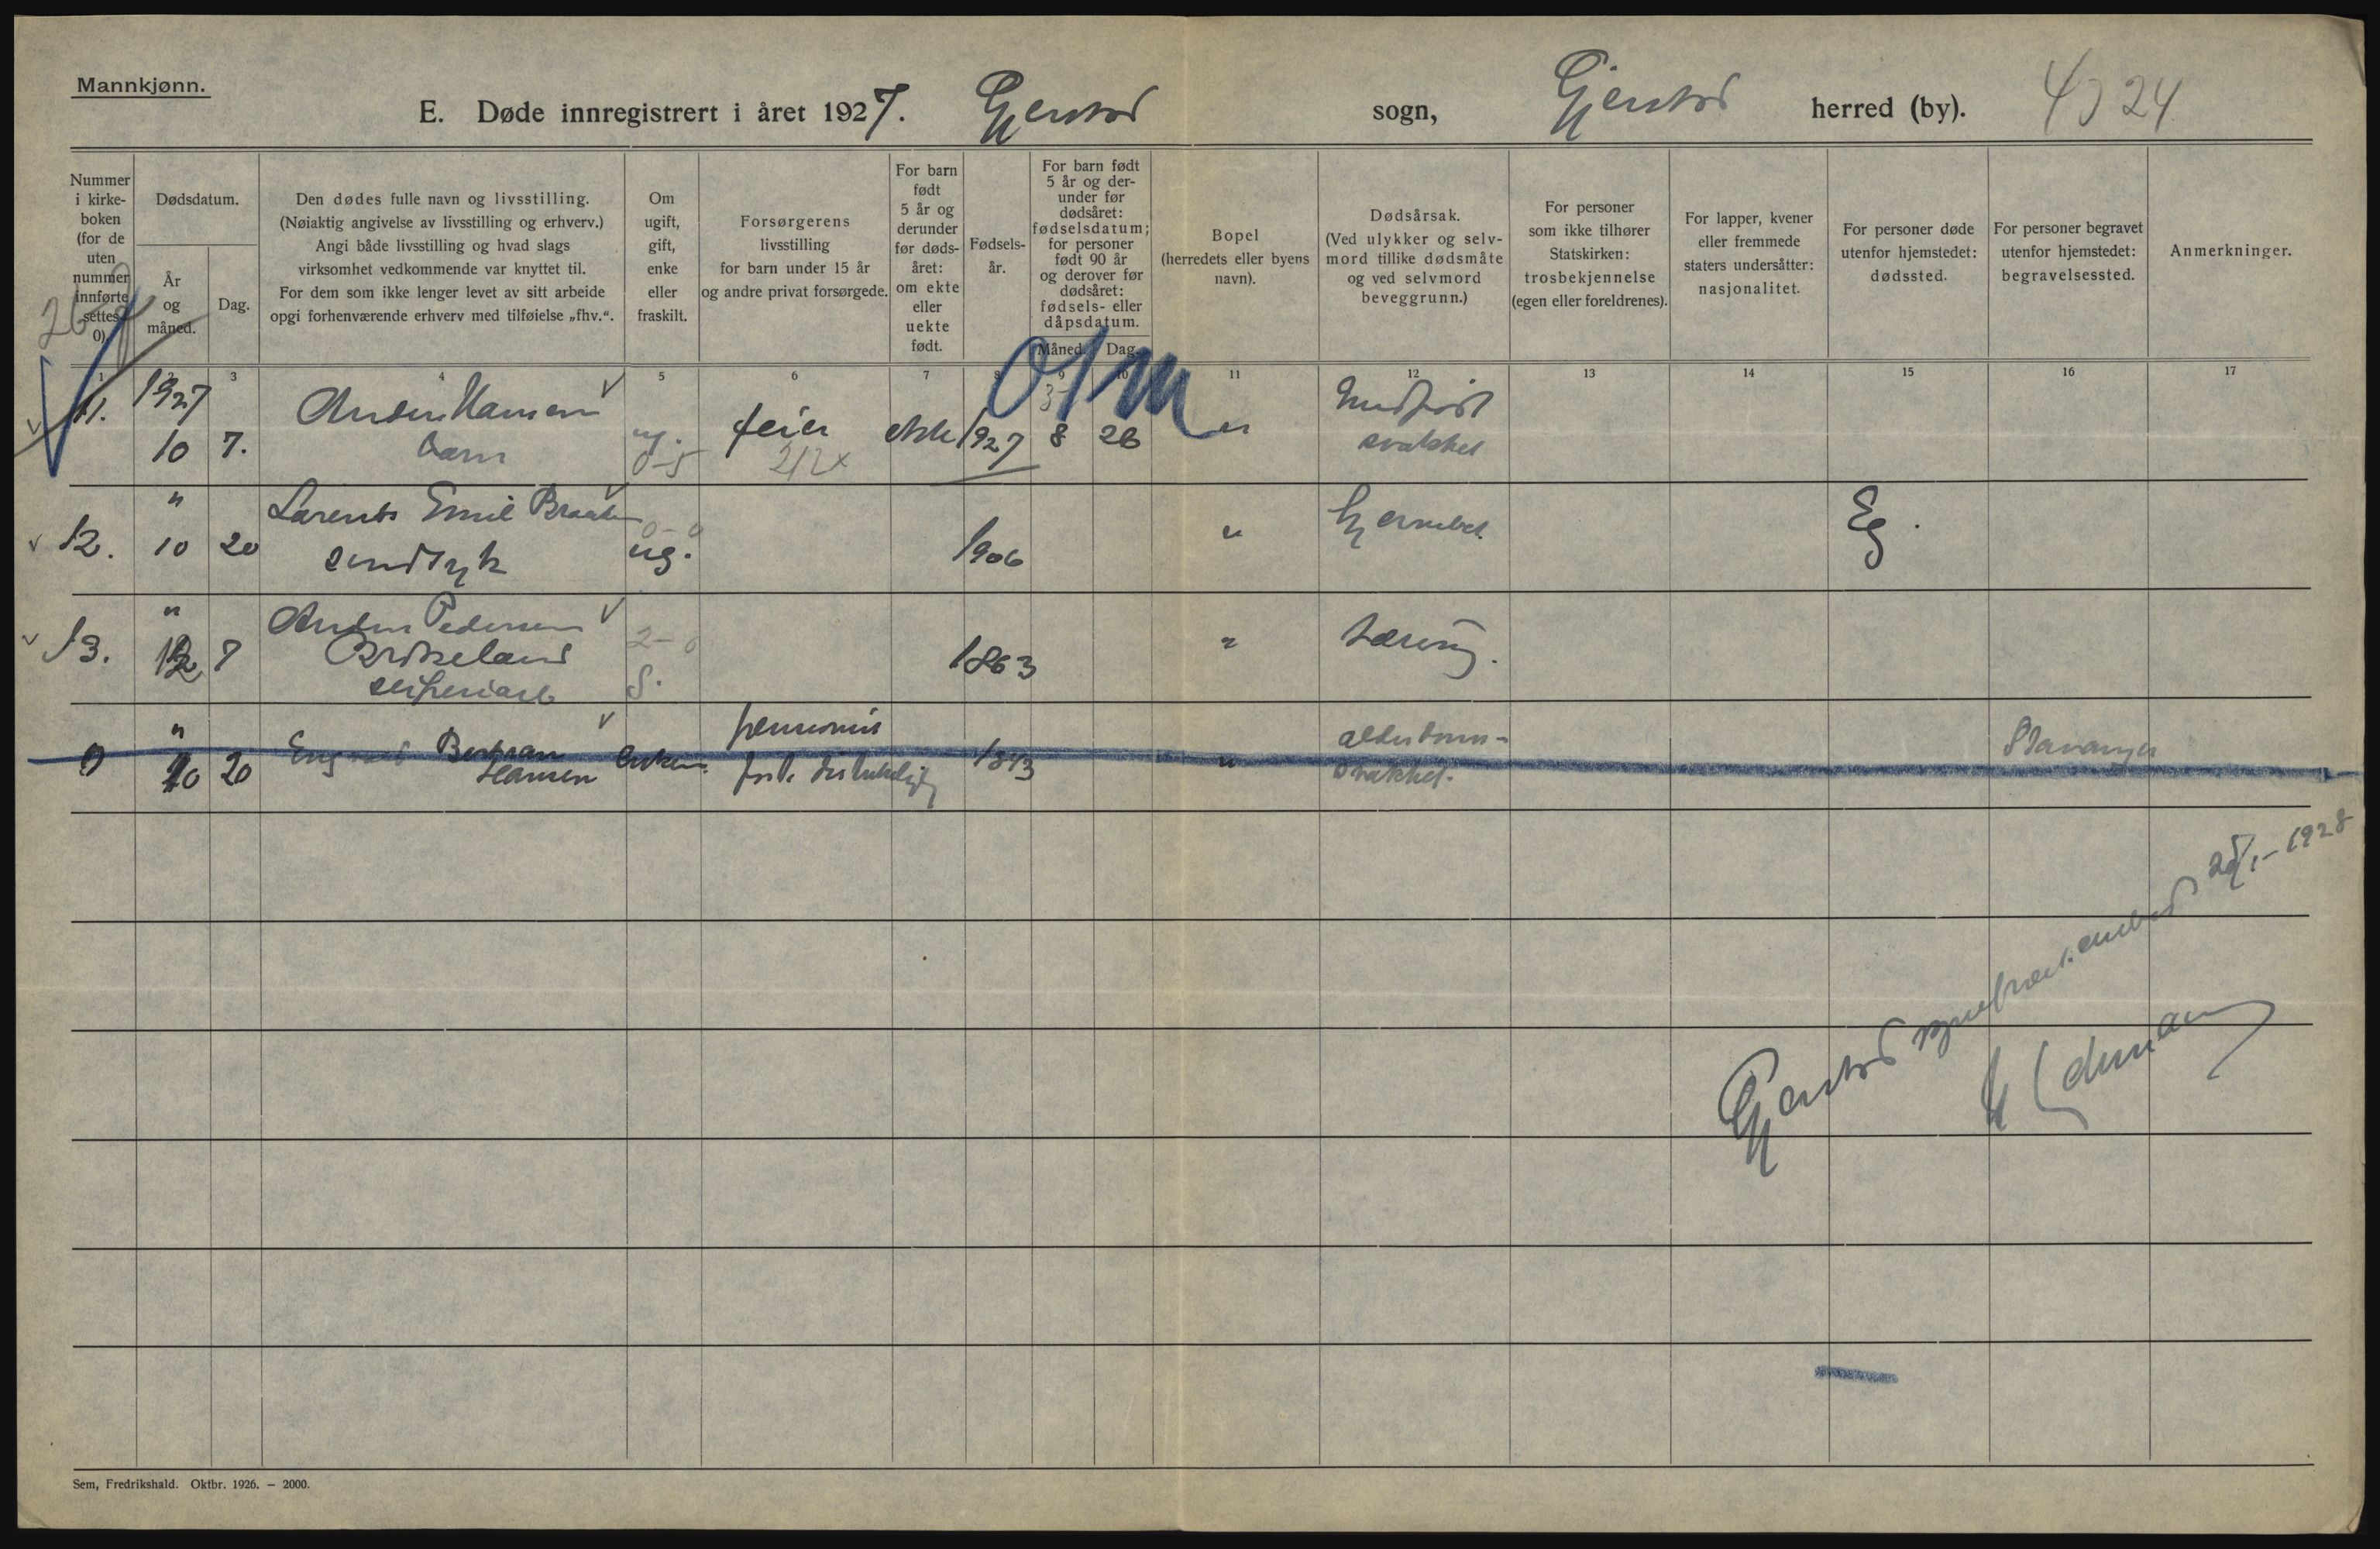 Mannkjønn.
E. Døde innregistrert i året 1927. Gjerstad sogn, Gjerstad herred (by). 4) 24
Nummer i kirke-boken (for de uten nummer innførte settes 0).
Dødsdatum.
År og måned.
Dag.
Den dødes fulle navn og livsstilling.
(Nøiaktig angivelse av livsstilling og erhverv.)
Angi både livsstilling og hvad slags
virksomhet vedkommende var knyttet til.
For dem som ikke lenger levet av sitt arbeide
opgi forhenværende erhverv med tilføielse „fhv.“.
Om ugift, gift, enke eller fraskilt.
Forsørgerens
livsstilling
for barn under 15 år
og andre privat forsørgede.
For barn født 5 år og derunder før døds-året: om ekte eller uekte født.
Fødsels-år.
For barn født 5 år og der-under før dødsåret: fødselsdatum; for personer født 90 år og derover før dødsåret: fødsels- eller dåpsdatum.
Måned. Dag.
Bopel
(herredets eller byens
navn).
Dødsårsak.
(Ved ulykker og selv-
mord tillike dødsmåte
og ved selvmord
beveggrunn.)
For personer
som ikke tilhører
Statskirken:
trosbekjennelse
(egen eller foreldrenes).
For lapper, kvener
eller fremmede
staters undersåtter:
nasjonalitet.
For personer døde
utenfor hjemstedet:
dødssted.
For personer begravet
utenfor hjemstedet:
begravelsessted.
Anmerkninger.
1 2 3 4 5 6 7 8 9 10 11 12 13 14 15 16 17
11. 1927 10 7. Anders Hansen barn ug. 0-5 feier 212x ekte 1927 8 28 " Medfødt svakhet
12. " 10 20 Laurents Emil Braaten sindsyk 0-0 ug. 1906 " Hjernebet. Eg.
13. " 12 7 Anders Pedersen Brokeland 2-0 g. 1863 " tæring.
0 " 10 20 Bertran Hansen enkem. pensionist 1843 " alderdoms-svakhet. Stavanger
Gjerstad sogneprest.embed 25/1-1928
Sem, Fredrikshald. Oktbr. 1926. — 2000.